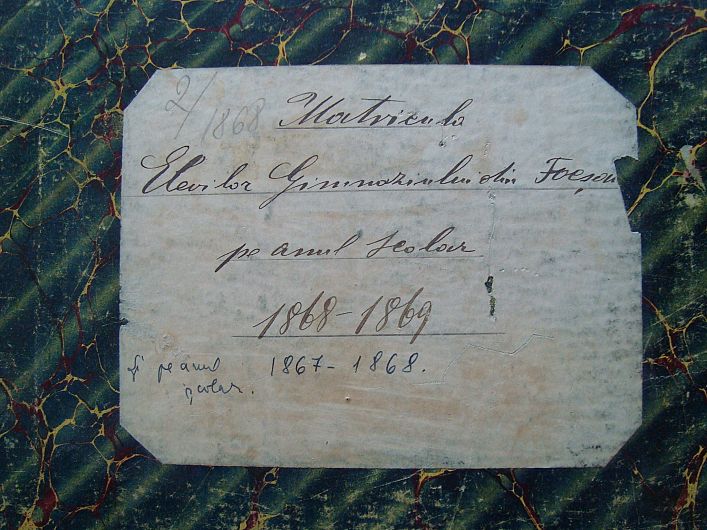 2/1868
Matricula
Elevilor Gimnaziului din Focșan
pe anul școlar
1868-1869
și pe anul 1867-1868.
școlar.